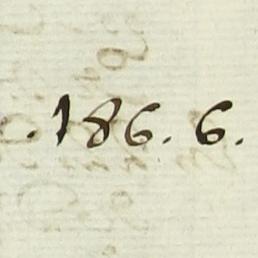 . 186. 6.